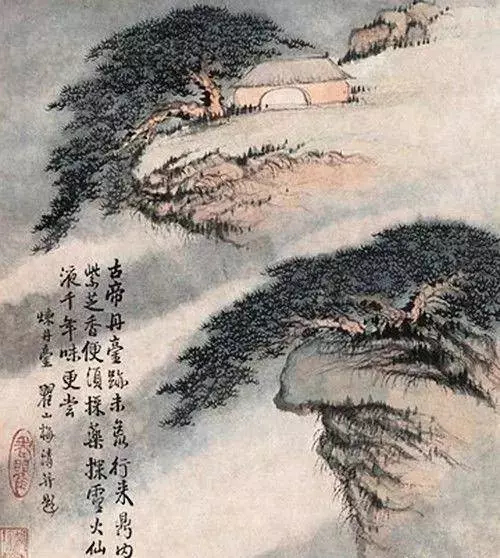 古帝丹臺跡未荒行来鼎内
紫芝香便須採藥探靈火仙
液千年味更嘗
煉丹臺 瞿山梅清并題